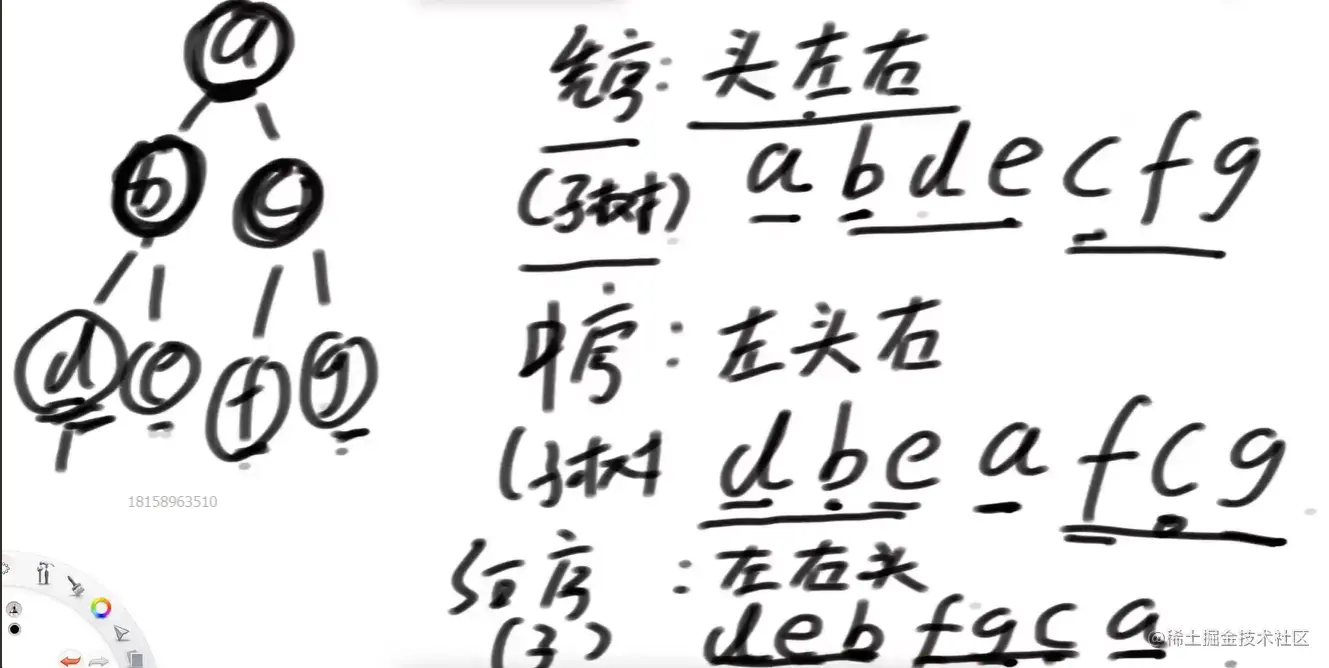 a
先序：头左右
b c
(子树) a b d e c f g
中序：左头右
d e f g
(子树 d b e a f c g
18158963510
后序：左右头
(子) d e b f g c a
@稀土掘金技术社区